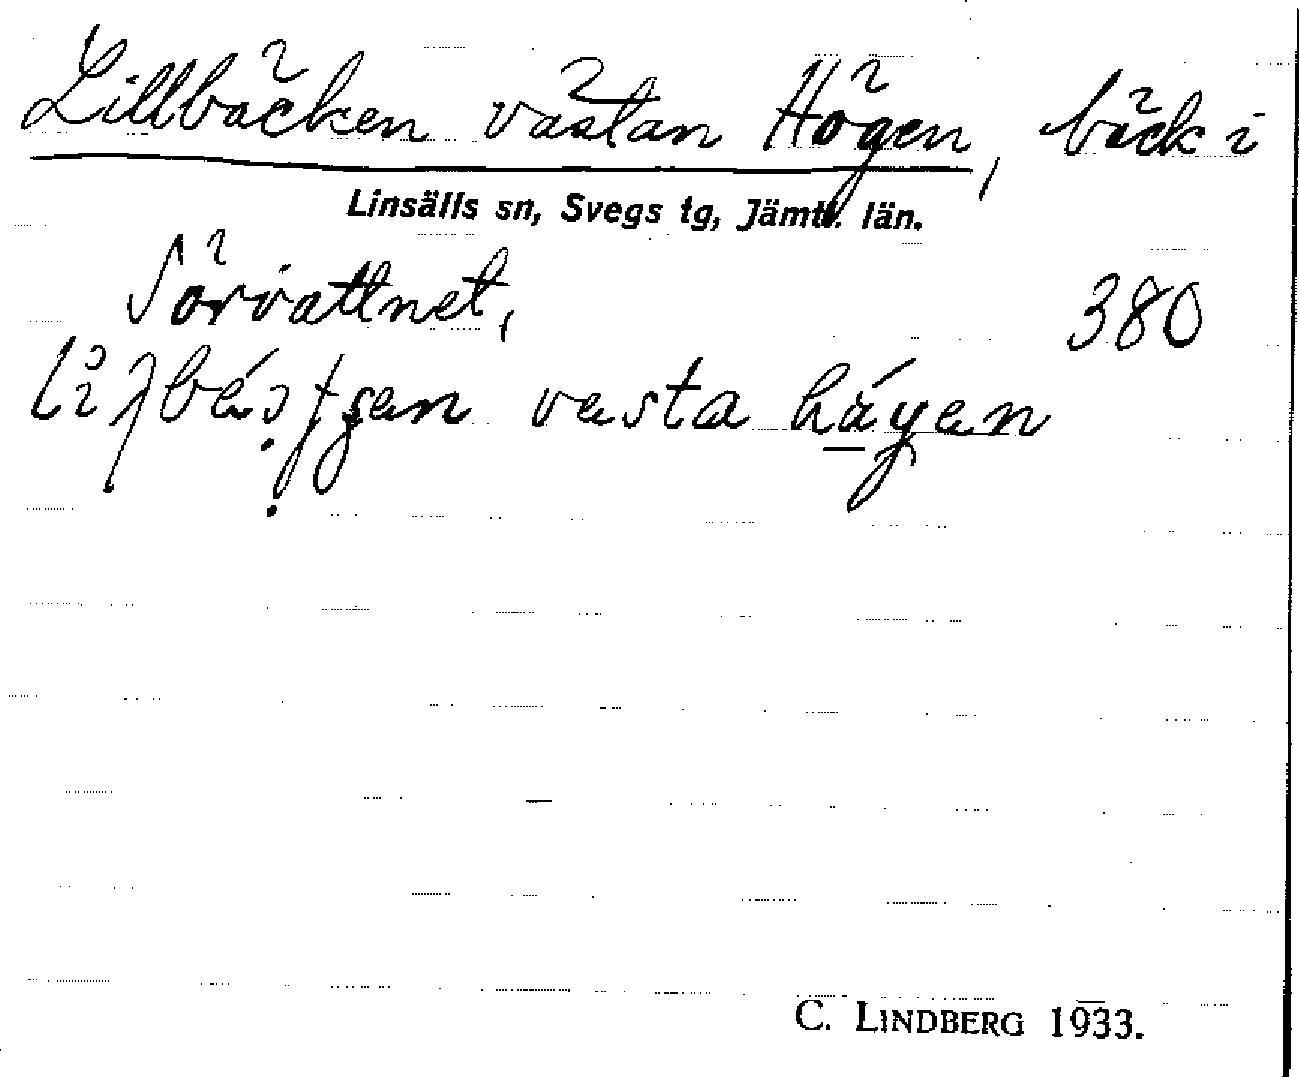 Lillbäcken västan Högen, bäck i
Linsälls sn, Svegs tg, Jämtl. län.
Sörvattnet, 380
vasta
C. LINDBERG 1933.